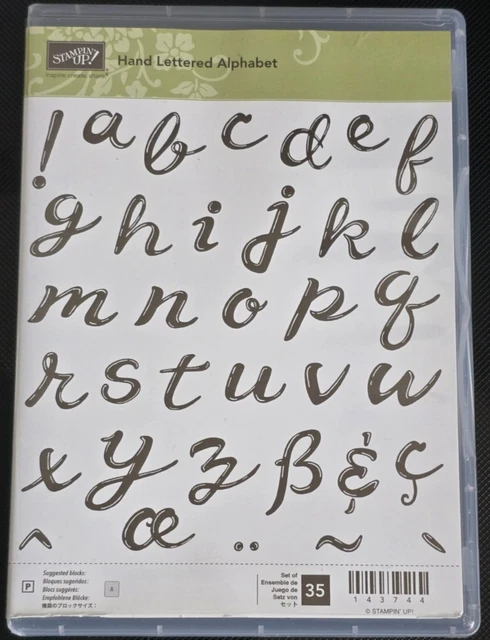 STAMPIN' UP!
inspire. create. share.
Hand Lettered Alphabet
! a b c d e f
g h i j k l
m n o p q
r s t u v w
x y z ß & ç
^ œ ¨ ~ `
P
Suggested blocks:
Bloques sugeridos:
Blocs suggérés:
Empfohlene Blöcke:
推奨のブロックサイズ:
A
Set of
Ensemble de
Juego de
Satz von
セット
35
143744
© STAMPIN' UP!